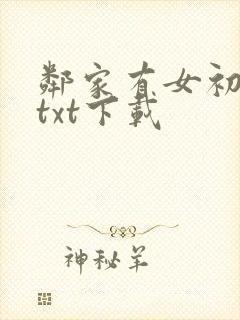 鄰家有女初
txt下載
神秘羊